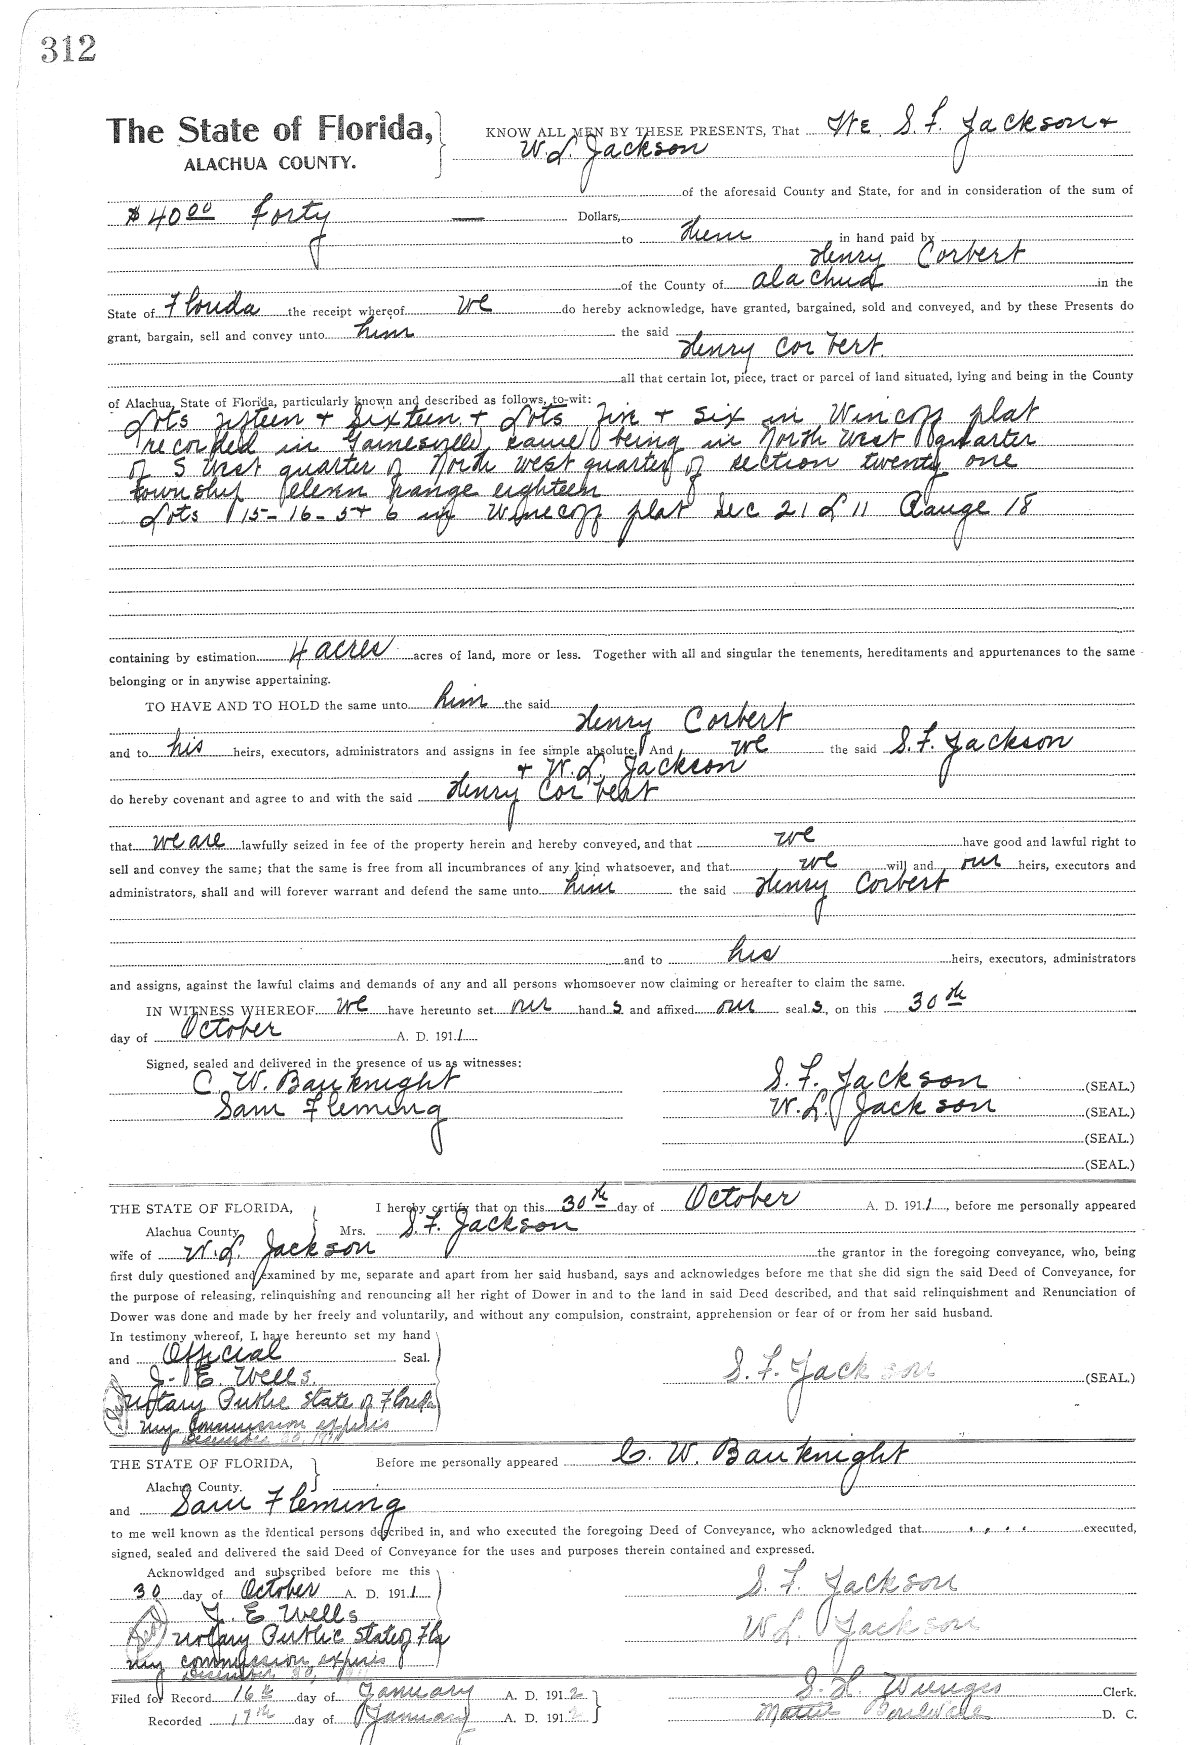 312
The State of Florida,
ALACHUA COUNTY.
KNOW ALL MEN BY THESE PRESENTS, That We S. F. Jackson +
W. L. Jackson
of the aforesaid County and State, for and in consideration of the sum of
$40 00 Forty — Dollars,
to them in hand paid by
Henry Corbert
of the County of Alachua in the
State of Florida the receipt whereof we do hereby acknowledge, have granted, bargained, sold and conveyed, and by these Presents do
grant, bargain, sell and convey unto him the said
Henry Corbert
all that certain lot, piece, tract or parcel of land situated, lying and being in the County
of Alachua, State of Florida, particularly known and described as follows, to-wit:
Lots fifteen + Sixteen + Lots five + six in Wincoff plat
recorded in Gainesville, same being in North West quarter
of S West quarter of North west quarter of section twenty one
township eleven Range eighteen
Lots 15-16-5+6 in Winecoff plat Sec 21 11 Range 18
containing by estimation 4 acres acres of land, more or less. Together with all and singular the tenements, hereditaments and appurtenances to the same
belonging or in anywise appertaining.
TO HAVE AND TO HOLD the same unto him the said
Henry Corbert
and to his heirs, executors, administrators and assigns in fee simple absolute, And we the said S. F. Jackson
+ W. L. Jackson
do hereby covenant and agree to and with the said Henry Corbert
that we are lawfully seized in fee of the property herein and hereby conveyed, and that we have good and lawful right to
sell and convey the same; that the same is free from all incumbrances of any kind whatsoever, and that we will and our heirs, executors and
administrators, shall and will forever warrant and defend the same unto him the said Henry Corbert
and to his heirs, executors, administrators
and assigns, against the lawful claims and demands of any and all persons whomsoever now claiming or hereafter to claim the same.
IN WITNESS WHEREOF we have hereunto set our hand s and affixed our seal s, on this 30th
day of October A. D. 1911
Signed, sealed and delivered in the presence of us as witnesses:
C. W. Bauknight
Sam Fleming
S. F. Jackson (SEAL.)
W. L. Jackson (SEAL.)
(SEAL.)
(SEAL.)
THE STATE OF FLORIDA, I hereby certify that on this 30th day of October A. D. 1911, before me personally appeared
Alachua County. Mrs. S. F. Jackson
wife of W. L. Jackson the grantor in the foregoing conveyance, who, being
first duly questioned and examined by me, separate and apart from her said husband, says and acknowledges before me that she did sign the said Deed of Conveyance, for
the purpose of releasing, relinquishing and renouncing all her right of Dower in and to the land in said Deed described, and that said relinquishment and Renunciation of
Dower was done and made by her freely and voluntarily, and without any compulsion, constraint, apprehension or fear of or from her said husband.
In testimony whereof, I have hereunto set my hand
and Official Seal.
J. E. Wells.
Notary Public State of Florida
my Commission expires
S. F. Jackson (SEAL.)
THE STATE OF FLORIDA, Before me personally appeared C. W. Bauknight
Alachua County.
and Sam Fleming
to me well known as the identical persons described in, and who executed the foregoing Deed of Conveyance, who acknowledged that executed,
signed, sealed and delivered the said Deed of Conveyance for the uses and purposes therein contained and expressed.
Acknowldged and subscribed before me this
30 day of October A. D. 1911
J. E Wells
Notary Public State of Fla
my commission expires
S. F. Jackson
W L Jackson
Filed for Record 16th day of January A. D. 1912
Recorded 17th day of January A. D. 1912
S. H. Wienges Clerk.
D. C.